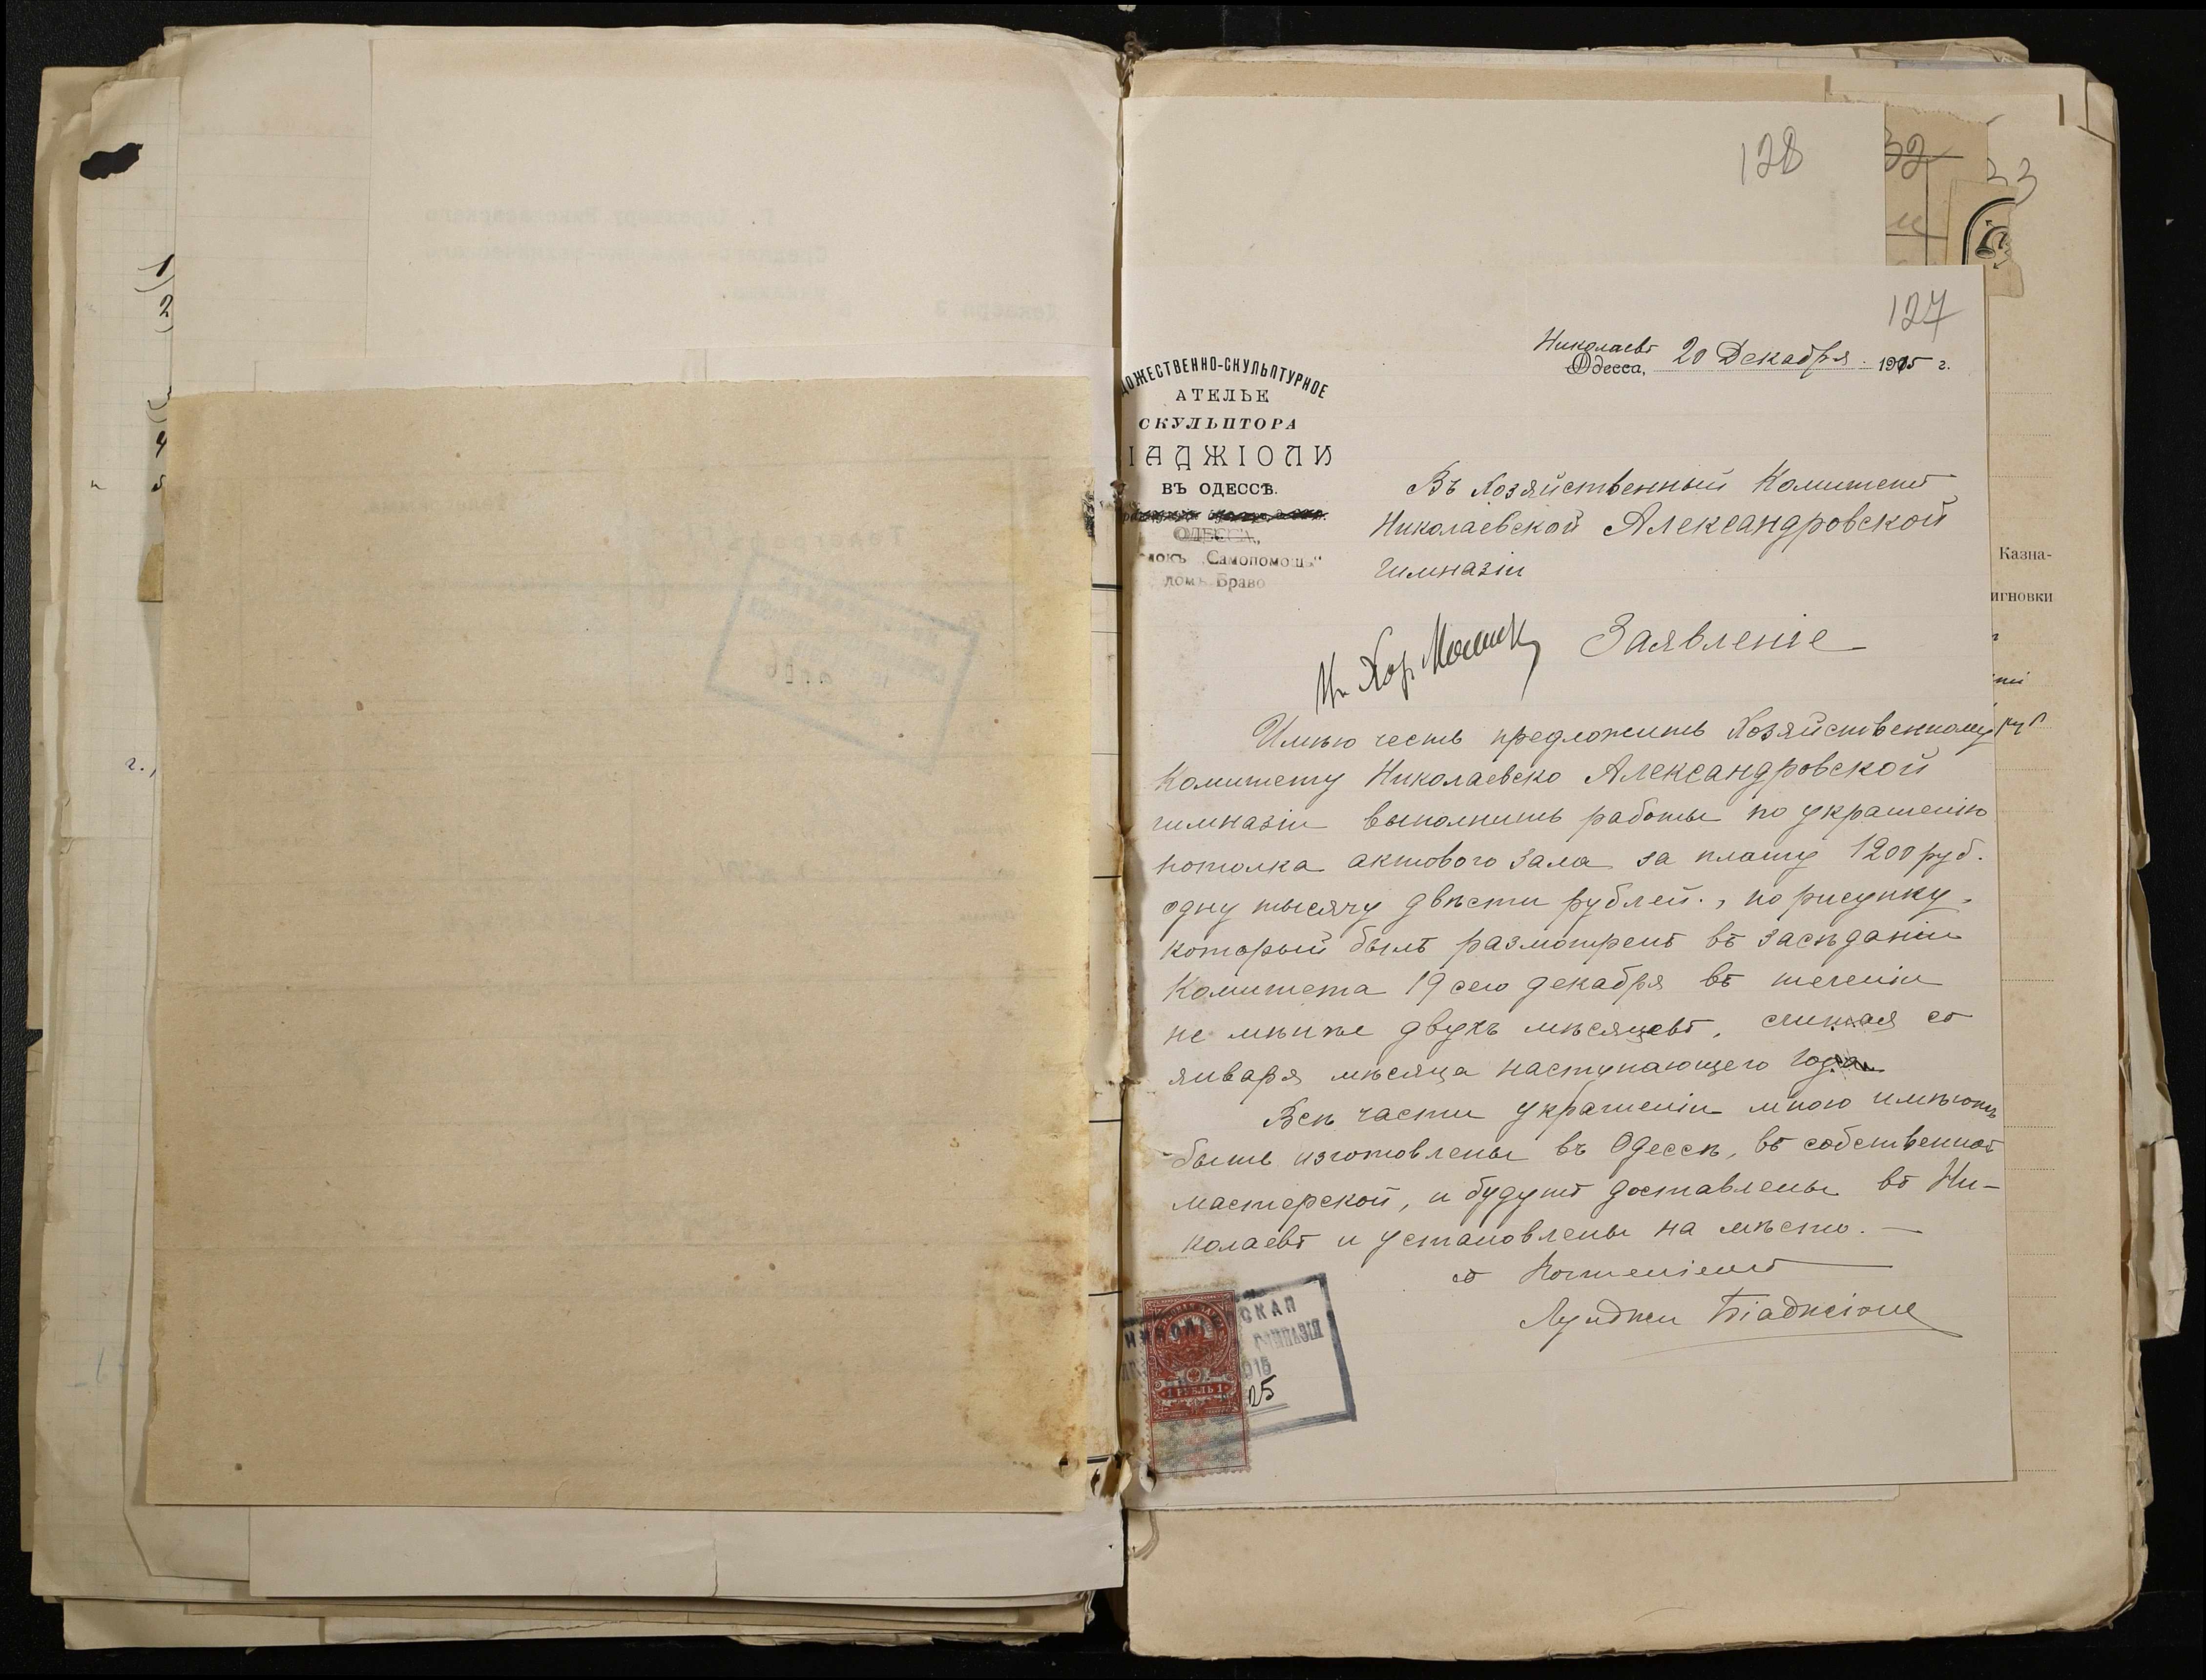 128
32
33
127
Николаевъ
Одесса, 20 Декабря 1915 г.
ДОЖЕСТВЕННО-СКУЛЬПТУРНОЕ
АТЕЛЬЕ
СКУЛЬПТОРА
ІАДЖІОЛИ
ВЪ ОДЕССѢ.
ОДЕССА,
"Самопомощь"
домъ Браво
Въ Хозяйственный Комитетъ
Николаевской Александровской
гимназіи
Заявленіе
Имѣю честь предложить Хозяйственному
Комитету Николаевско Александровской
гимназіи выполнить работы по украшенію
потолка актового зала за плату 1200 руб.
одну тысячу двѣсти рублей., по рисунку,
который былъ размотренъ въ засѣданіи
Комитета 19 сего декабря въ теченіи
не мѣнѣе двухъ мѣсяцевъ, считая съ
января мѣсяца наступающего года
Всѣ части украшеніи мною имѣютъ
быть изготовлены въ Одессѣ, въ собственной
мастерской, и будутъ доставлены въ Ни-
колаевъ и установлены на мѣсто. —
съ Почтеніемъ
Луиджи Біаджіоли
СКАЯ
ГИМНАЗІЯ
1 РУБЛЬ 1
Казна-
игновки
1)
2)
4
5
г.,